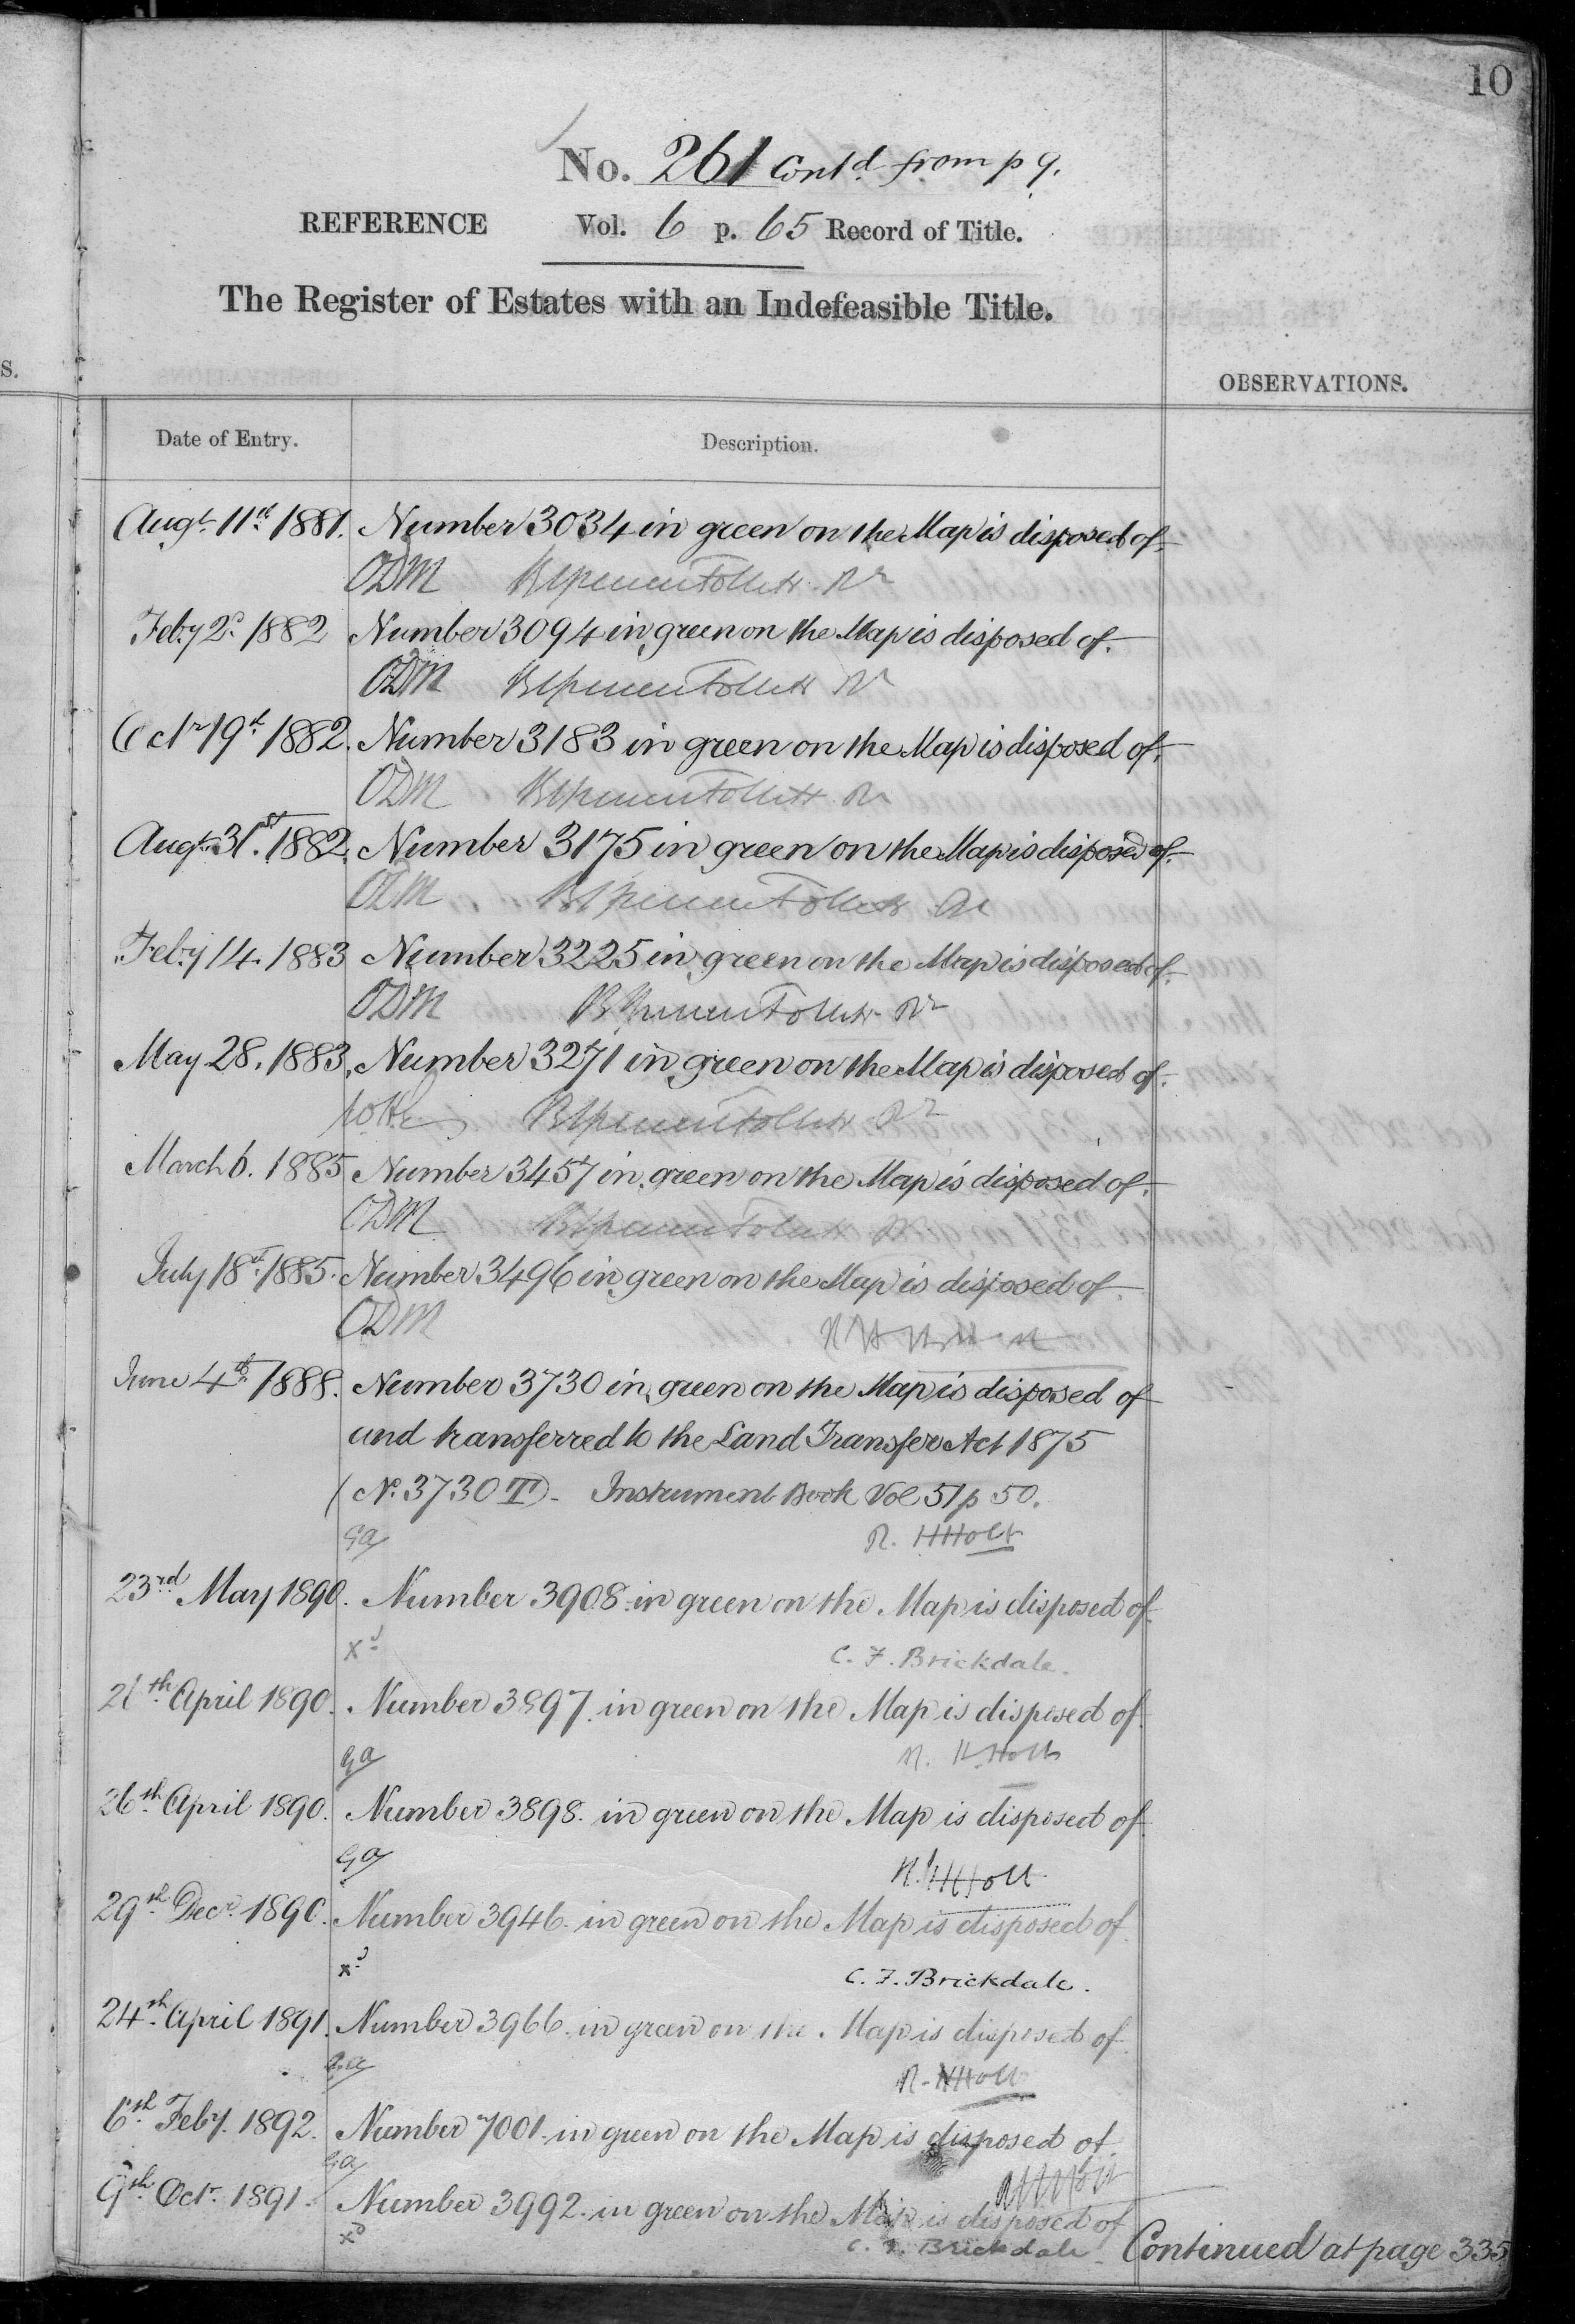 10
No. 261 Contd. from p 9.
REFERENCE Vol. 6 p. 65 Record of Title.
The Register of Estates with an Indefeasible Title.
S.
OBSERVATIONS.
Date of Entry. Description.
Augt. 11th. 1881. Number 3034 in green on the Map is disposed of.
ODM
Feby 2d. 1882 Number 3094 in green on the Map is disposed of.
ODM
Octr 19th 1882. Number 3183 in green on the Map is disposed of.
ODM
Augt. 31st. 1882. Number 3175 in green on the Map is disposed of.
ODM
Feby 14. 1883 Number 3225 in green on the Map is disposed of.
ODM
May 28. 1883. Number 3271 in green on the Map is disposed of.
March 6. 1885 Number 3457 in green on the Map is disposed of.
ODM
July 18th. 1885. Number 3496 in green on the Map is disposed of.
ODM
June 4th. 1888. Number 3730 in green on the Map is disposed of
and transferred to the Land Transfer Act 1875
(No. 3730 T). Instrument Book Vol 51 p 50.
Ga R. H Holt
23rd. May 1890. Number 3908. in green on the Map is disposed of.
C. F. Brickdale.
April 1890. Number 3897. in green on the Map is disposed of.
Ga R. H. Holt
26th. April 1890. Number 3898. in green on the Map is disposed of.
Ga R. H Holt
29th. Decr. 1890. Number 3946. in green on the Map is disposed of.
C. F. Brickdale.
24th. April 1891. Number 3966. in green on the Map is disposed of.
Ga R. H Holt
6th. Feby. 1892. Number 7001. in green on the Map is disposed of.
Ga
9th. Octr. 1891. Number 3992. in green on the Map is disposed of
C. F. Brickdale. Continued at page 335